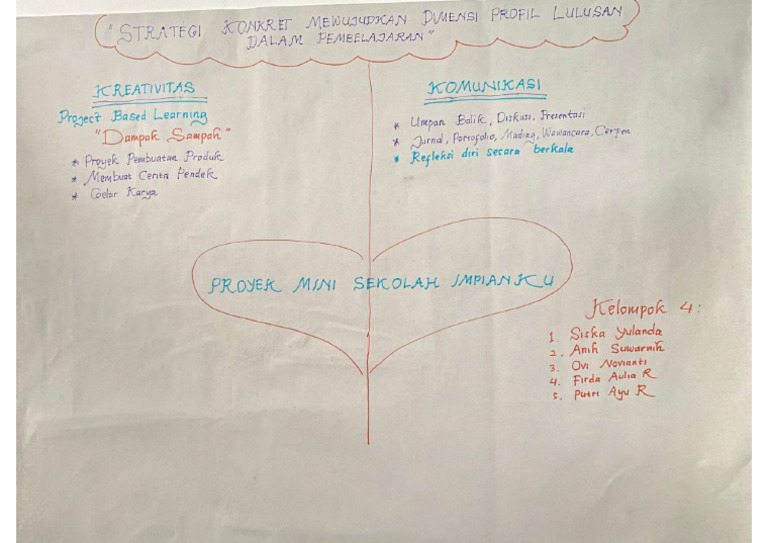 "STRATEGI KONKRET MEWUJUDKAN DIMENSI PROFIL LULUSAN
DALAM PEMBELAJARAN"
KREATIVITAS
Project Based Learning
"Dampak Sampah"
* Proyek Pembuatan Produk
* Membuat Cerita Pendek
* Gelar Karya
KOMUNIKASI
* Umpan Balik, Diskusi, Presentasi
* Jurnal, Portofolio, Mading, Wawancara, Cerpen
* Refleksi diri secara berkala
PROYEK MINI SEKOLAH IMPIANKU
Kelompok 4:
1. Siska Yulanda
2. Anih Suwarnih
3. Ovi Novianti
4. Firda Aulia R
5. Putri Ayu R